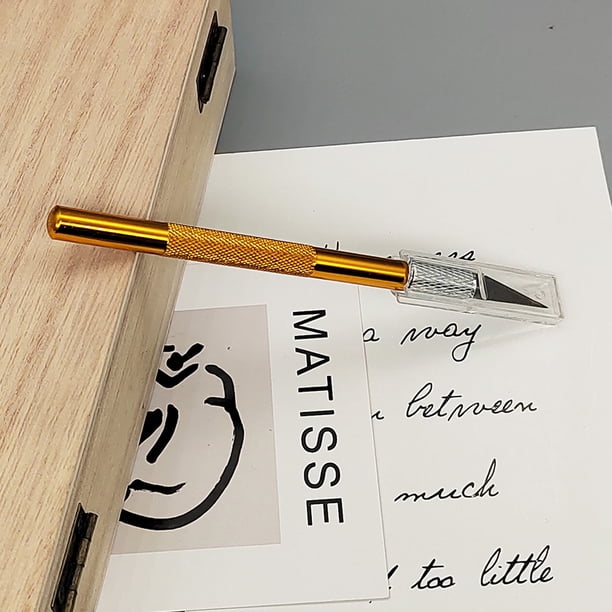 MATISSE
a way
between
much
too little